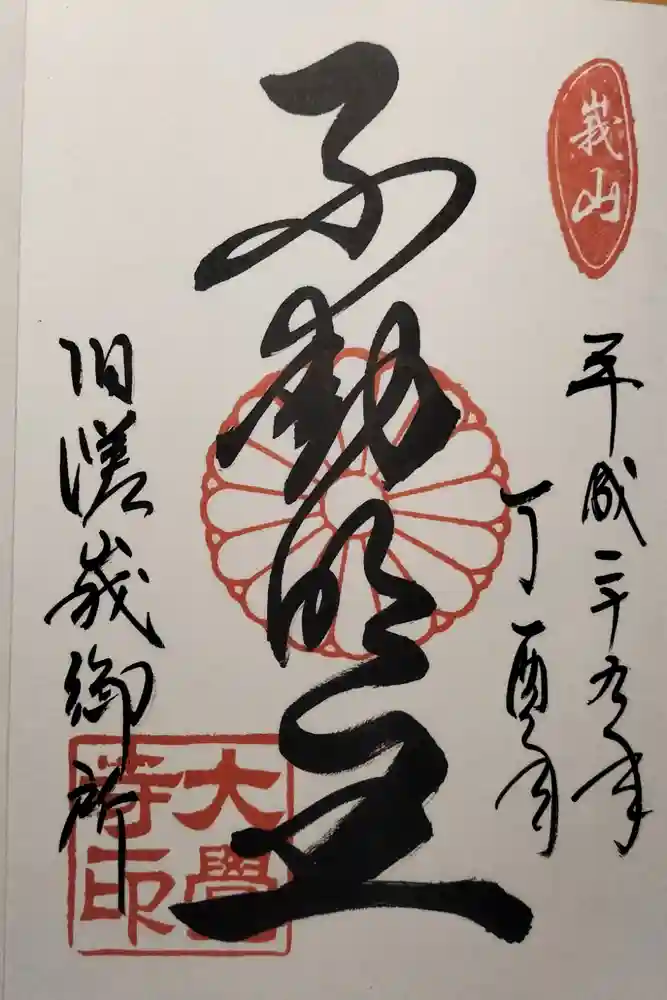 峩山
平成二十九年
丁酉年
不動明王
旧嵯峩御所
大覺寺印